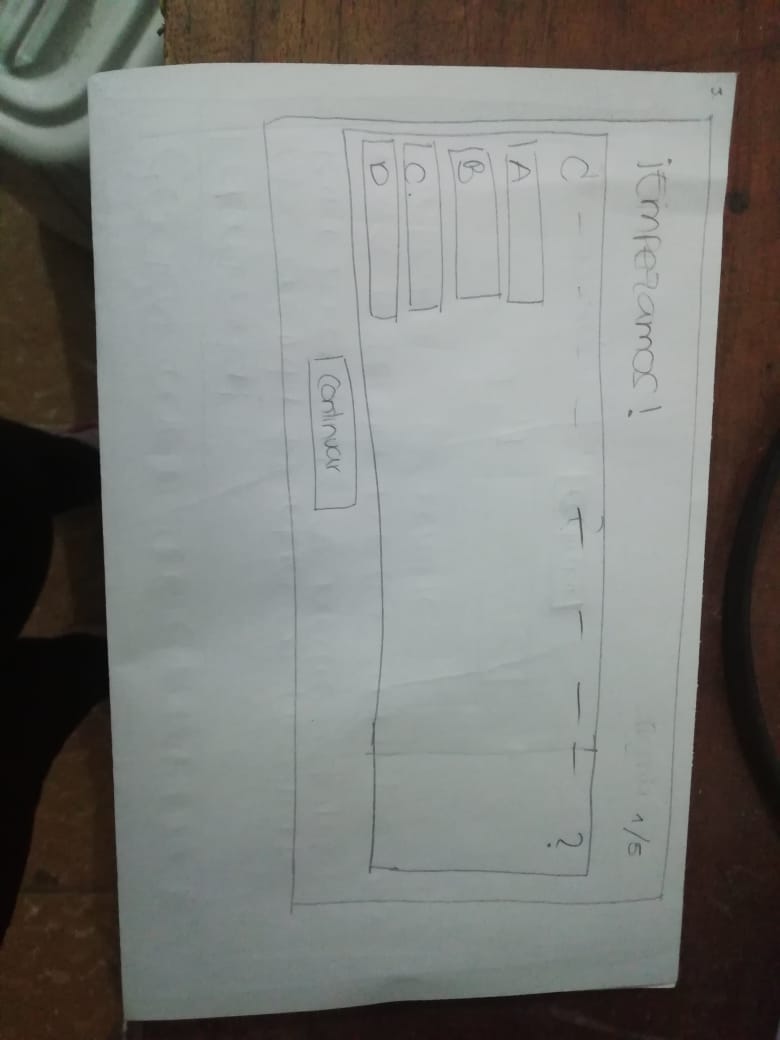 3
¡Empezamos! 1/5
¿ _ _ _ _ _ _ _ _ ?
A
B
C.
D
Continuar